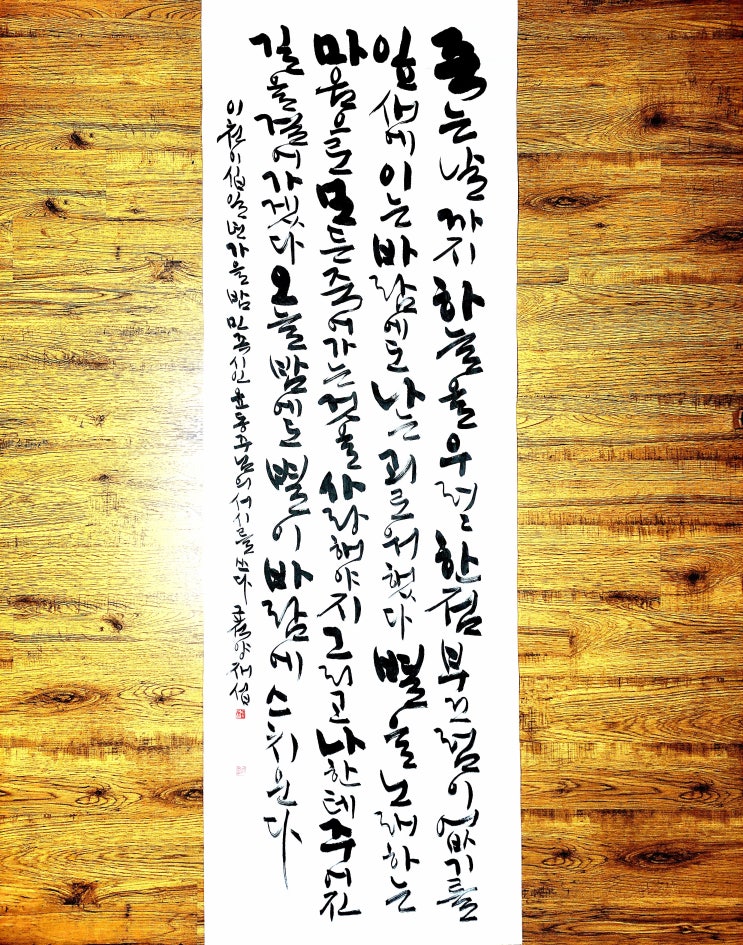 죽는 날까지 하늘을 우럴 한점 부끄럼이 없기를
잎새에 이는 바람에도 나는 괴로워했다 별을 노래하는
마음으로 모든 죽어가는 것을 사랑해야지 그리고 나한테 주어진
길을 걸어가겠다 오늘밤에도 별이 바람에 스치운다
이천이십일년 가을밤 민족시인 윤동주님의 서시를 쓰다 양재섭